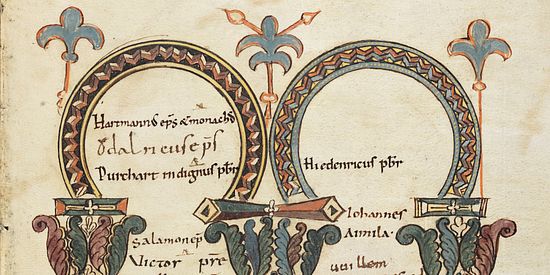 Hartmannus eps & monachus
Odalricus eps
Purchart indignus pbr
Hiedenricus pbr
Iohannes
Salamon ep
Aimila
Victor pre
uuillem